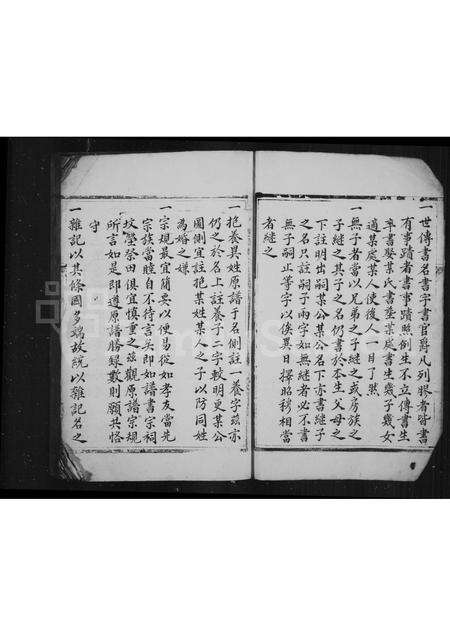 一世傳書名書字書官爵凡列膠者皆書
有事蹟者書事蹟照例生不立傳書生
卒書娶某氏書塟某處書生幾子幾女
適某處某人使後人一目了然
一無子者當以兄弟之子継之或房族之
子継之其子之名仍書於本生父母之
下註明出嗣某公某公名下亦書継子
之名只註嗣子兩字如無継者必不書
無子嗣止等字以俟異日擇昭穆相當
者継之
一抱養異姓原譜于名側註一養字玆亦
仍之於名上註養子二字較明更某公
圖側宜註抱某姓某人之子以防同姓
為婚之嫌
一宗規最宜簡要以便易從如孝友當先
宗族當睦自不待言矣即如譜書宗祠
坟塋祭田俱宜慎重之玆觀原譜宗規
所言如是即遵原譜勝録數則願共恪
守
一雜記以其條圖多端故統以雜記名之